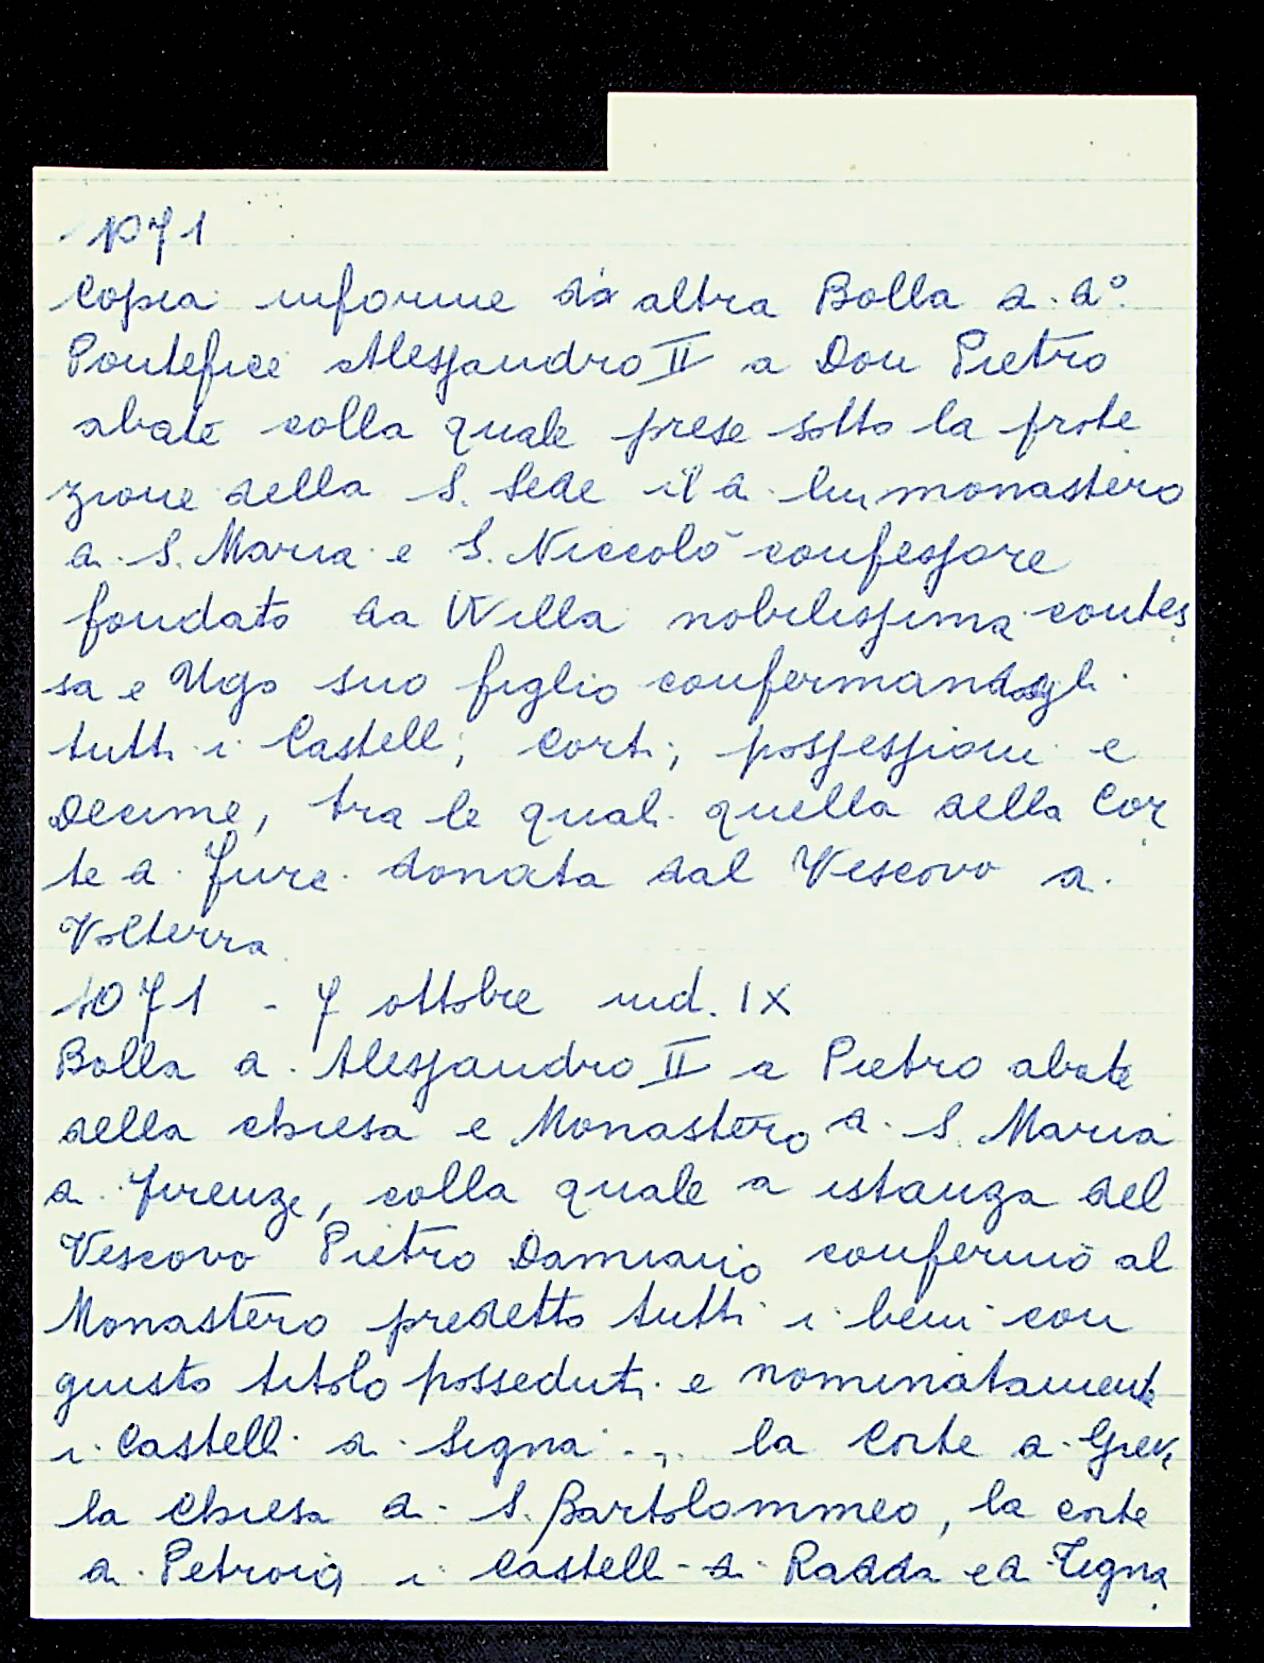 1071
Copia informe di altra Bolla di d°.
Pontefice Alessandro II a Don Pietro
abate colla quale prese sotto la prote
zione della S. Sede il di lui monastero
di S. Maria e S. Niccolò confessore
fondato da Willa nobilissima contes
sa e Ugo suo figlio confermandogli
tutti i Castelli, Corti, possessioni e
Decime, tra le quali quella della Cor
te di donata dal Vescovo di
Volterra
1071 - 7 ottobre ind. IX
Bolla di Alessandro II a Pietro abate
della chiesa e Monastero di S. Maria
di Firenze, colla quale a istanza del
Vescovo Pietro Damiano confermò al
Monastero predetto tutti i beni con
giusto titolo posseduti e nominatamente
i Castelli di Signa .. la Corte di Greve
la Chiesa di S. Bartolommeo, la corte
di Petroio i Castelli di Radda e di